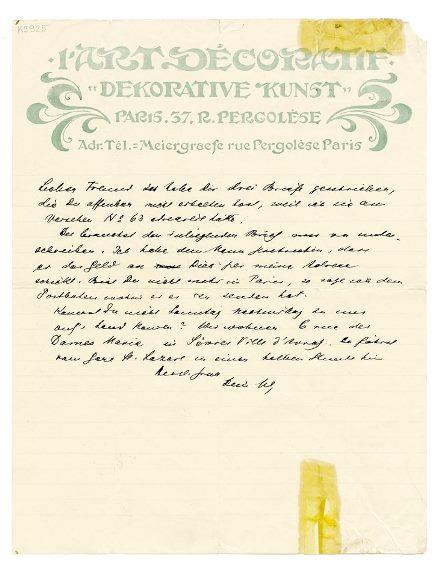 K5925
L'ART DÉCORATIF
"DEKORATIVE KUNST"
PARIS. 37. R. PERGOLÈSE
Adr. Tél. = Meiergraefe rue Pergolèse Paris
Lieber Freund ich habe Dir drei Briefe geschrieben,
die Du offenbar nicht erhalten hast, weil ich sie aus
Versehen No 63 adressirt habe.
Brief
schreiben. Ich habe dem geschrieben, dass
er das Geld an Dich per meine Adresse
schickt. Bist Du nicht mehr in Paris, so sage mir den
er es zu senden hat.
Kannst Du nicht Sonntag Nachmittag zu uns
aufs Land kommen? Wir wohnen 6 rue des
Dames Marie in Sèvres Ville d'Avray. Du fährst
vom Gare St. Lazare in einer halben Stunde hin
Herzl. Gruss
Dein